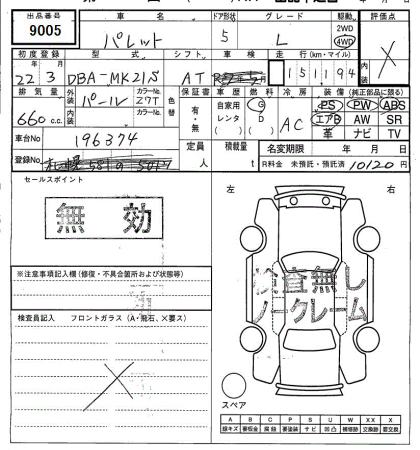 出品番号 車名 ドア形状 グレード 駆動 評価点
9005 パレット 5 L 2WD 4WD ×
初度登録 型式 シフト 車検 走行(km・マイル) 内装
年 月
22.3 DBA-MK21S AT 15194
排気量 外装 カラーNo. 色替 保証書 車歴 燃料 冷房 装備(純正部品に限る)
660 c.c. パール Z7T 有・無 自家用 G AC PS PW ABS
内装 カラーNo. レンタ D エアB AW SR
( ) ( ) 革 ナビ TV
車台No 196374 定員 人 積載量 t 名変期限 年 月 日
登録No R料金 未預託・預託済 10120 円
セールスポイント
無効
左 右
検査無し
ノークレーム
※注意事項記入欄(修復・不具合箇所および状態等)
検査員記入 フロントガラス(A・飛石、X要ス)
×
スペア
A B C P S U W XX X
線キズ 要板金 腐蝕 要塗装 サビ 凹凸 補修跡 交換跡 要交換